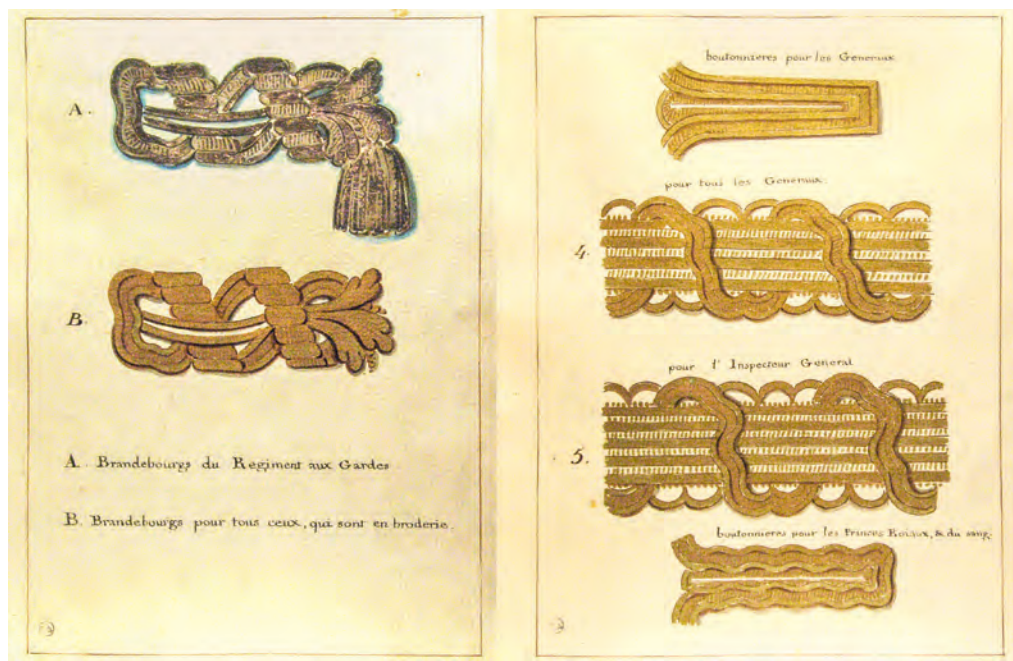 A.
B.
A. Brandebourgs du Regiment aux Gardes
B. Brandebourgs pour tous ceux, qui sont en broderie.
boutonnieres pour les Generaux
pour tous les Generaux
4.
pour l'Inspecteur General
5.
boutonnieres pour les Princes Roiaux, & du sang.